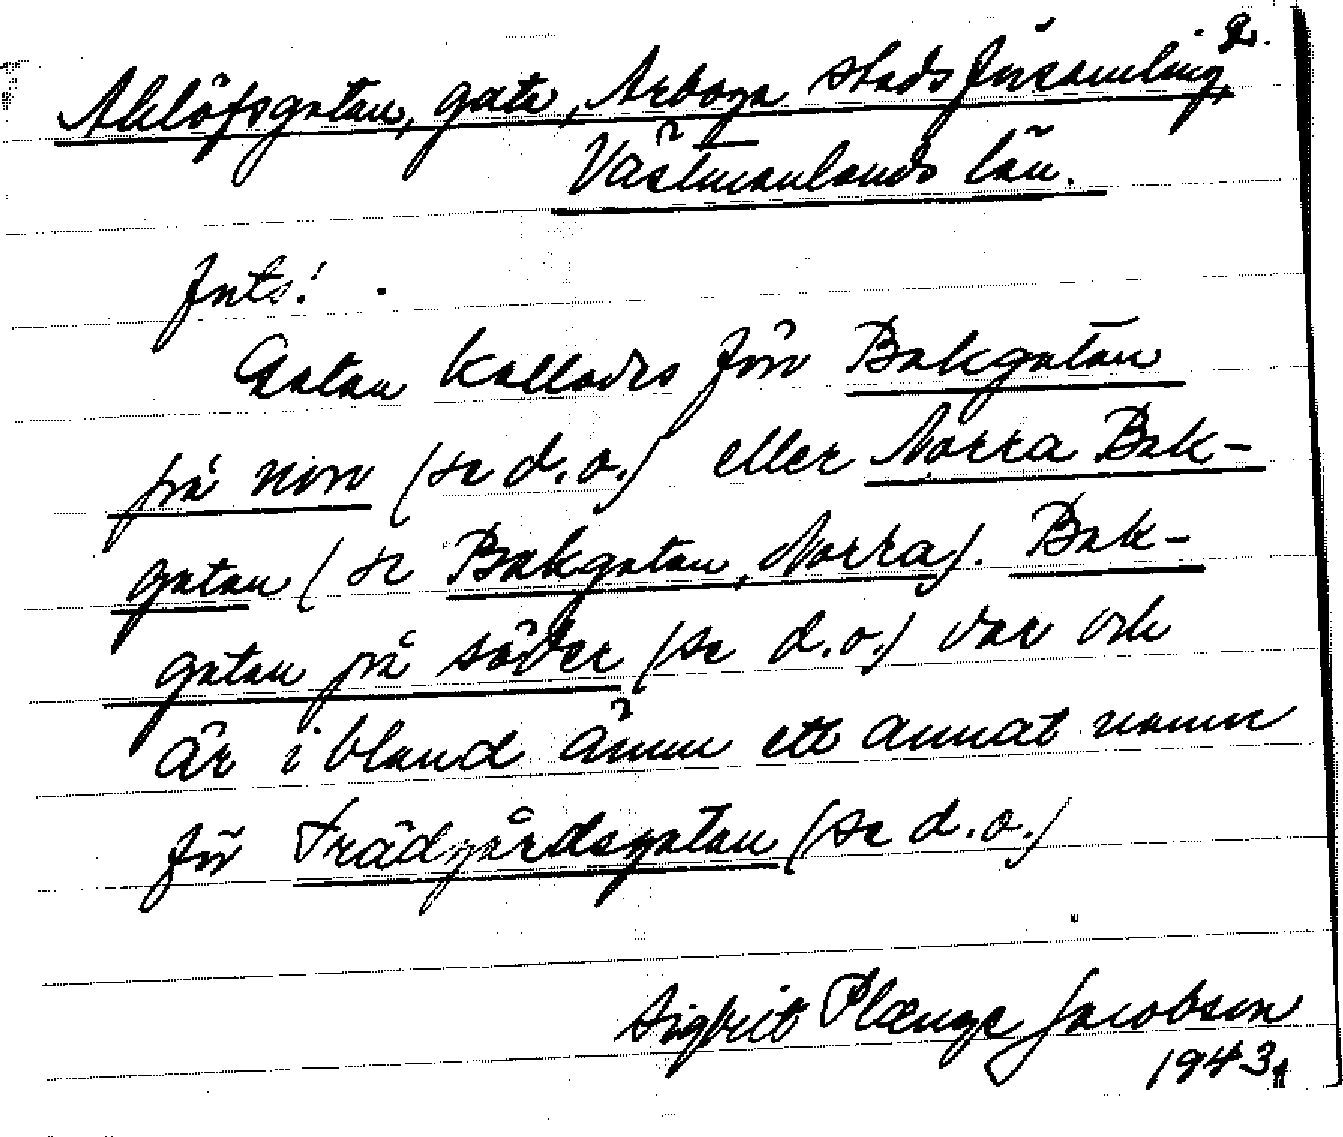 2.
Ahllöfsgatan, gata, Arboga stadsförsamling,
Västmanlands län.
Forts!
Gatan kallades förr Bakgatan
på norr (se d.o.) eller Norra Bak-
gatan (se Bakgatan, Norra). Bak-
gatan på söder (se d.o.) var och
är i bland ännu ett annat namn
för Trädgårdsgatan (se d.o.)
Sigbrit Plænge Jacobson
1943